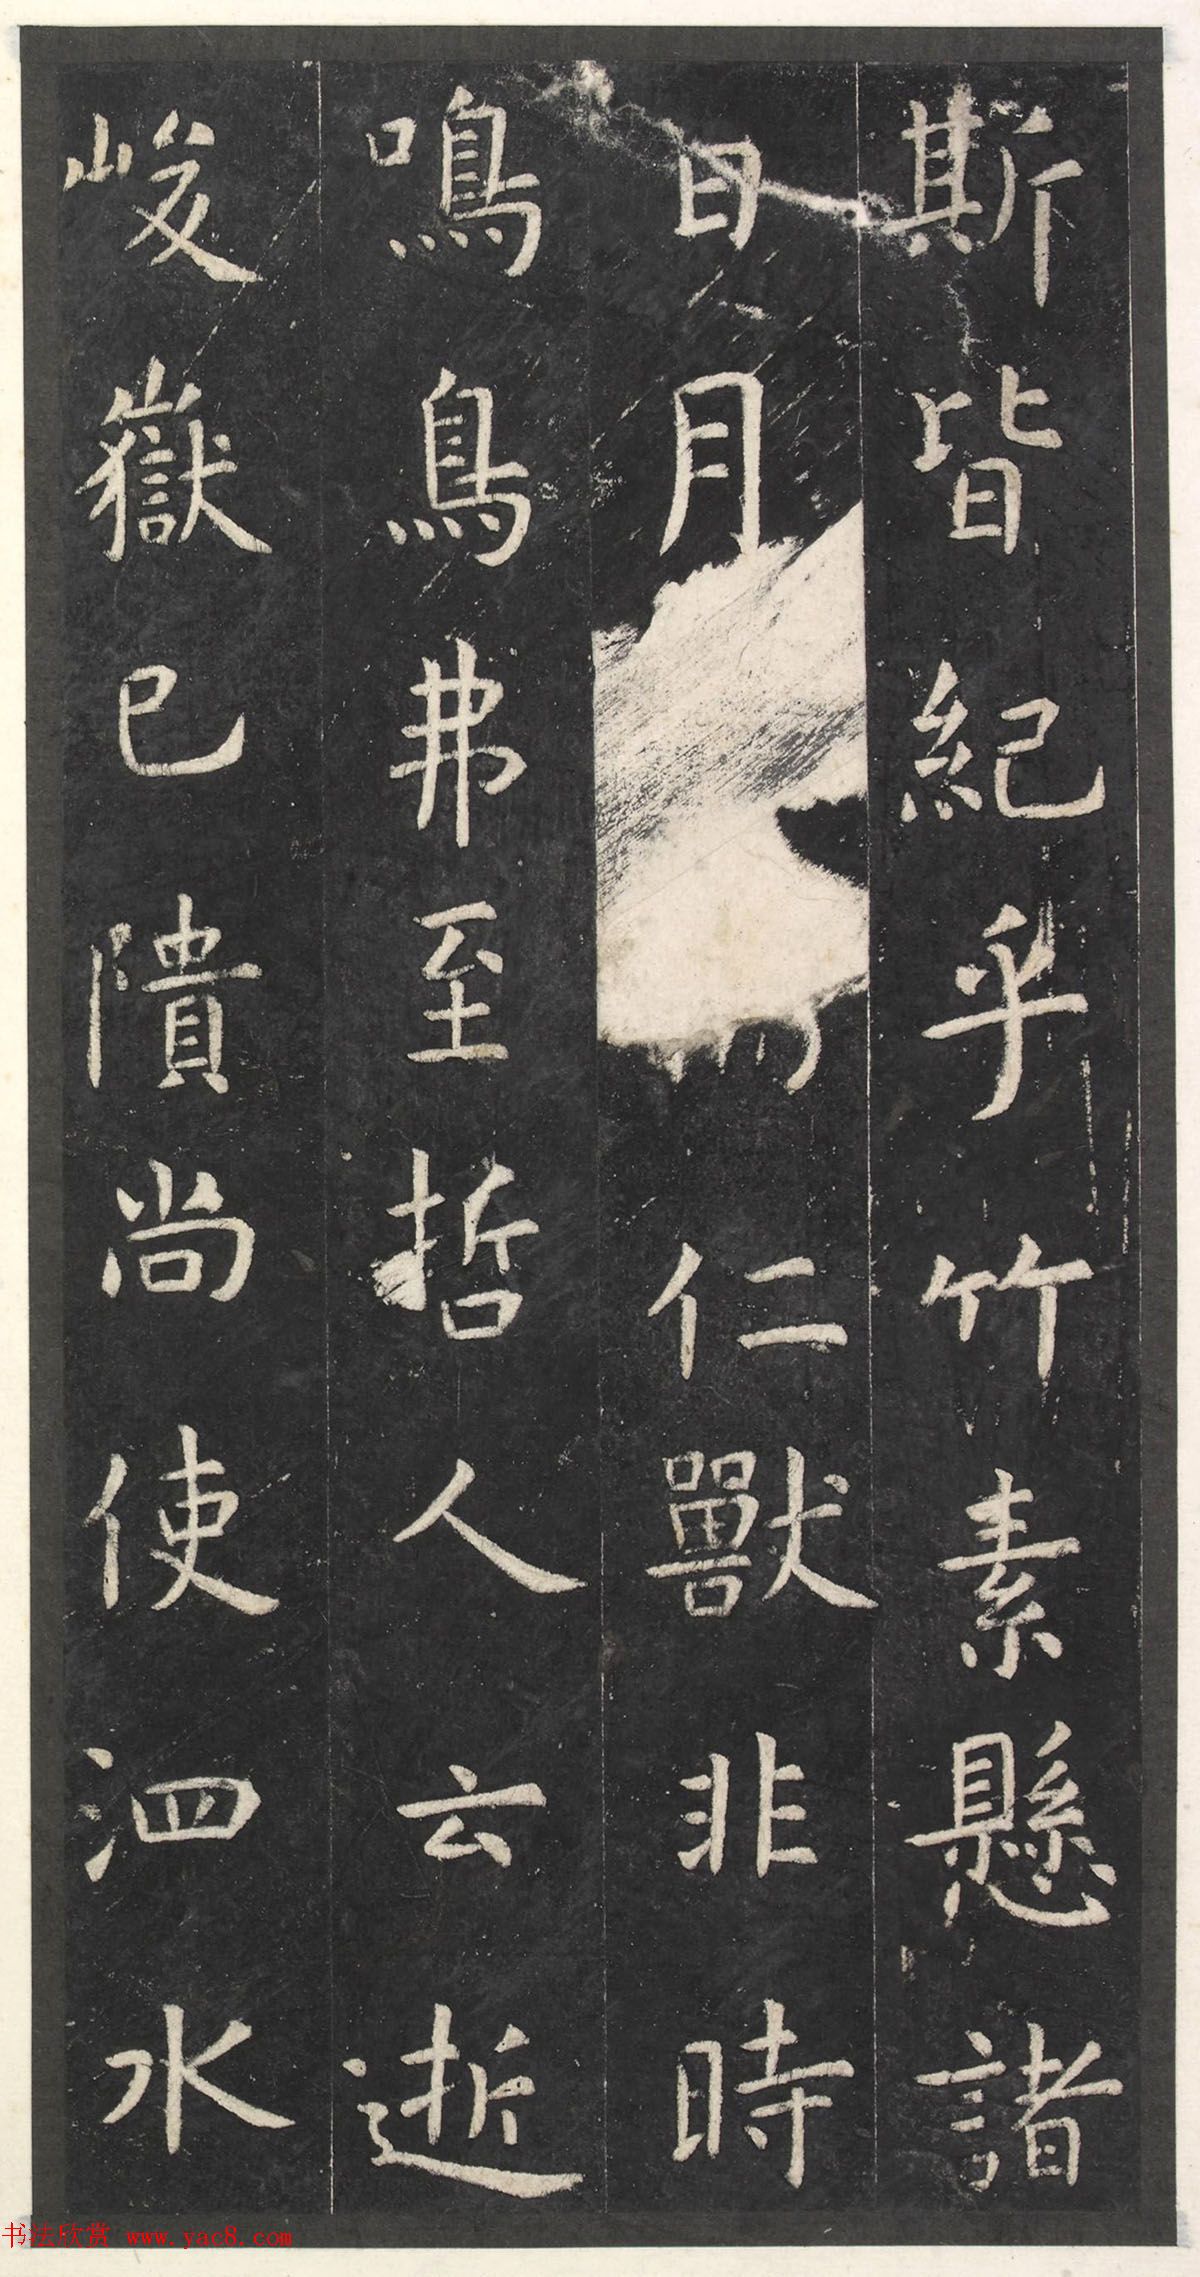 斯皆紀乎竹素懸諸
日月仁獸非時
鳴鳥弗至哲人云逝
峻嶽已隤尚使泗水
书法欣赏 www.yac8.com